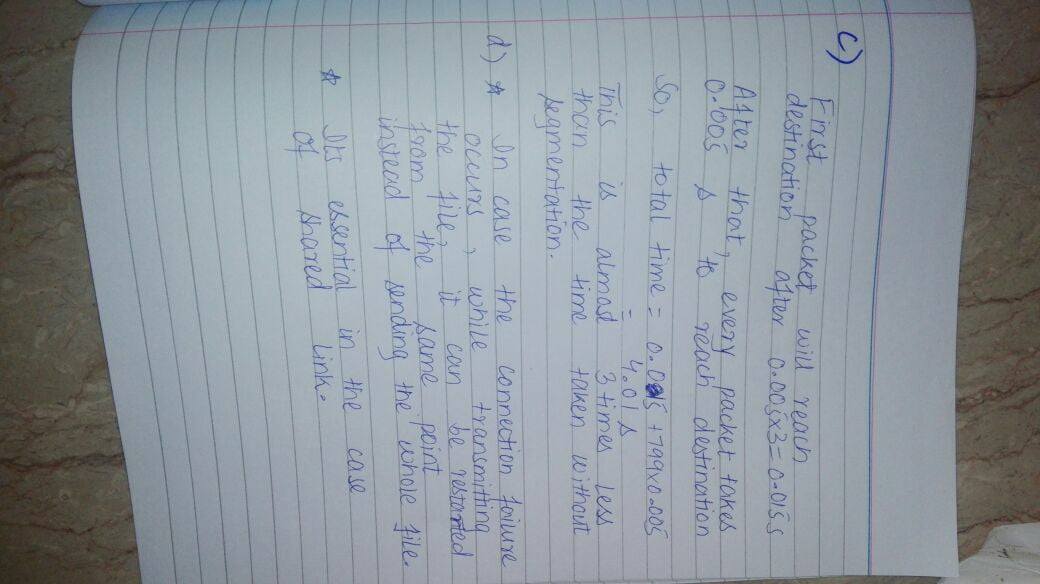 c)
First packet will reach
destination after 0.005x3=0.015s
After that, every packet takes
0.005 s to reach destination
So, total time = 0.015+799x0.005
= 4.01s
This is almost 3 times less
than the time taken without
segmentation.
d) * In case the connection failure
occurs, while transmitting
the file, it can be restarted
from the same point
instead of sending the whole file.
* Its essential in the case
of shared link.